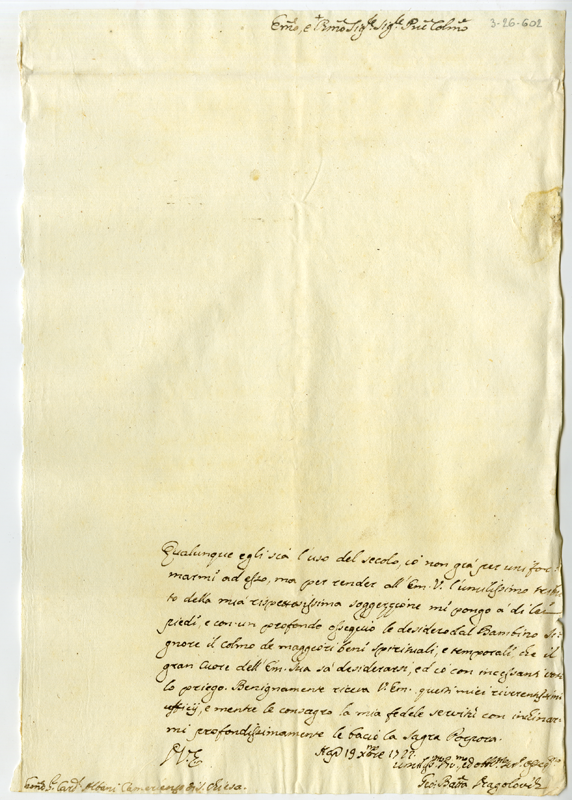 Emo, e Rmo Sigr Sigr Pne Colmo
3-26-602
Qualunque egli sia l'uso del secolo, io non già per unifor-
marmi ad esso, ma per render all'Em. V. l'umilissimo tribu-
to della mia rispettosissima soggezzione mi pongo a' di lei
piedi, e con un profondo ossequio le desidero dal Bambino Si-
gnore il colmo de maggiori beni spirituali, e temporali che il
gran Cuore dell'Em. Sua sa desiderarsi, ed io con incessanti voti
lo priego. Benignamente riceva V. Em. questi miei riverentissimi
ufficij, e mentre le consagro la mia fedele servitù con inclinar-
mi profondissimamente le bacio la Sagra Porpora.
D V E 19 Xbre
Gio: Batta
Emo Sr Card. Albani Camerlengo di S. Chiesa.